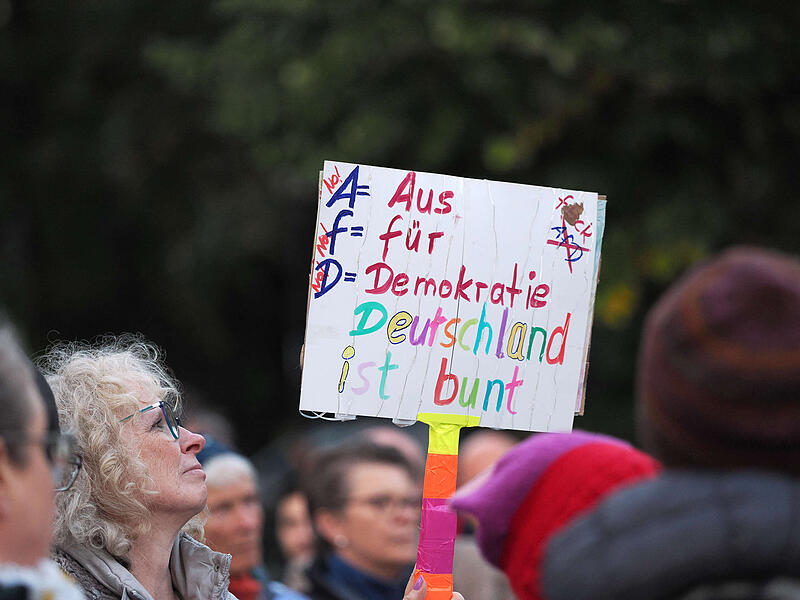 No! A= Aus
No! f= für
No! D= Demokratie
Deutschland
ist bunt
AfD